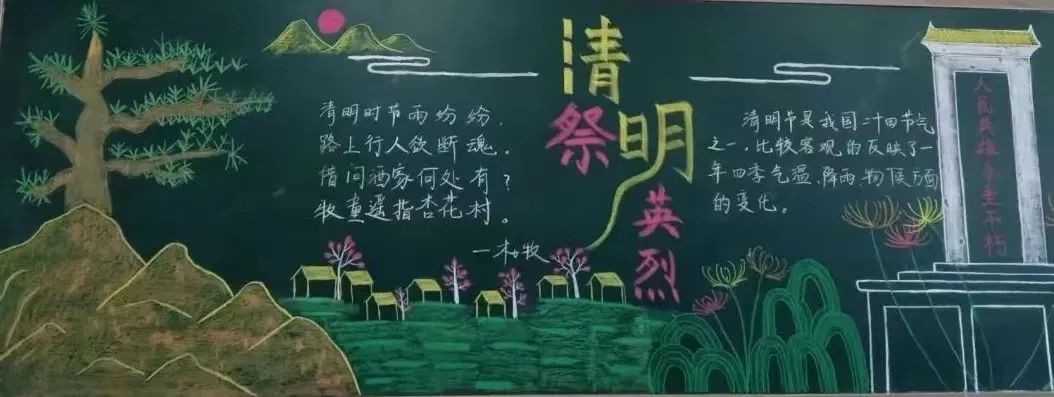 清明
祭英烈
清明时节雨纷纷,
路上行人欲断魂。
借问酒家何处有?
牧童遥指杏花村。
一杜牧
清明节是我国二十四节气
之一,比较客观的反映了一
年四季气温、降雨、物候方面
的变化。
人民英雄永垂不朽